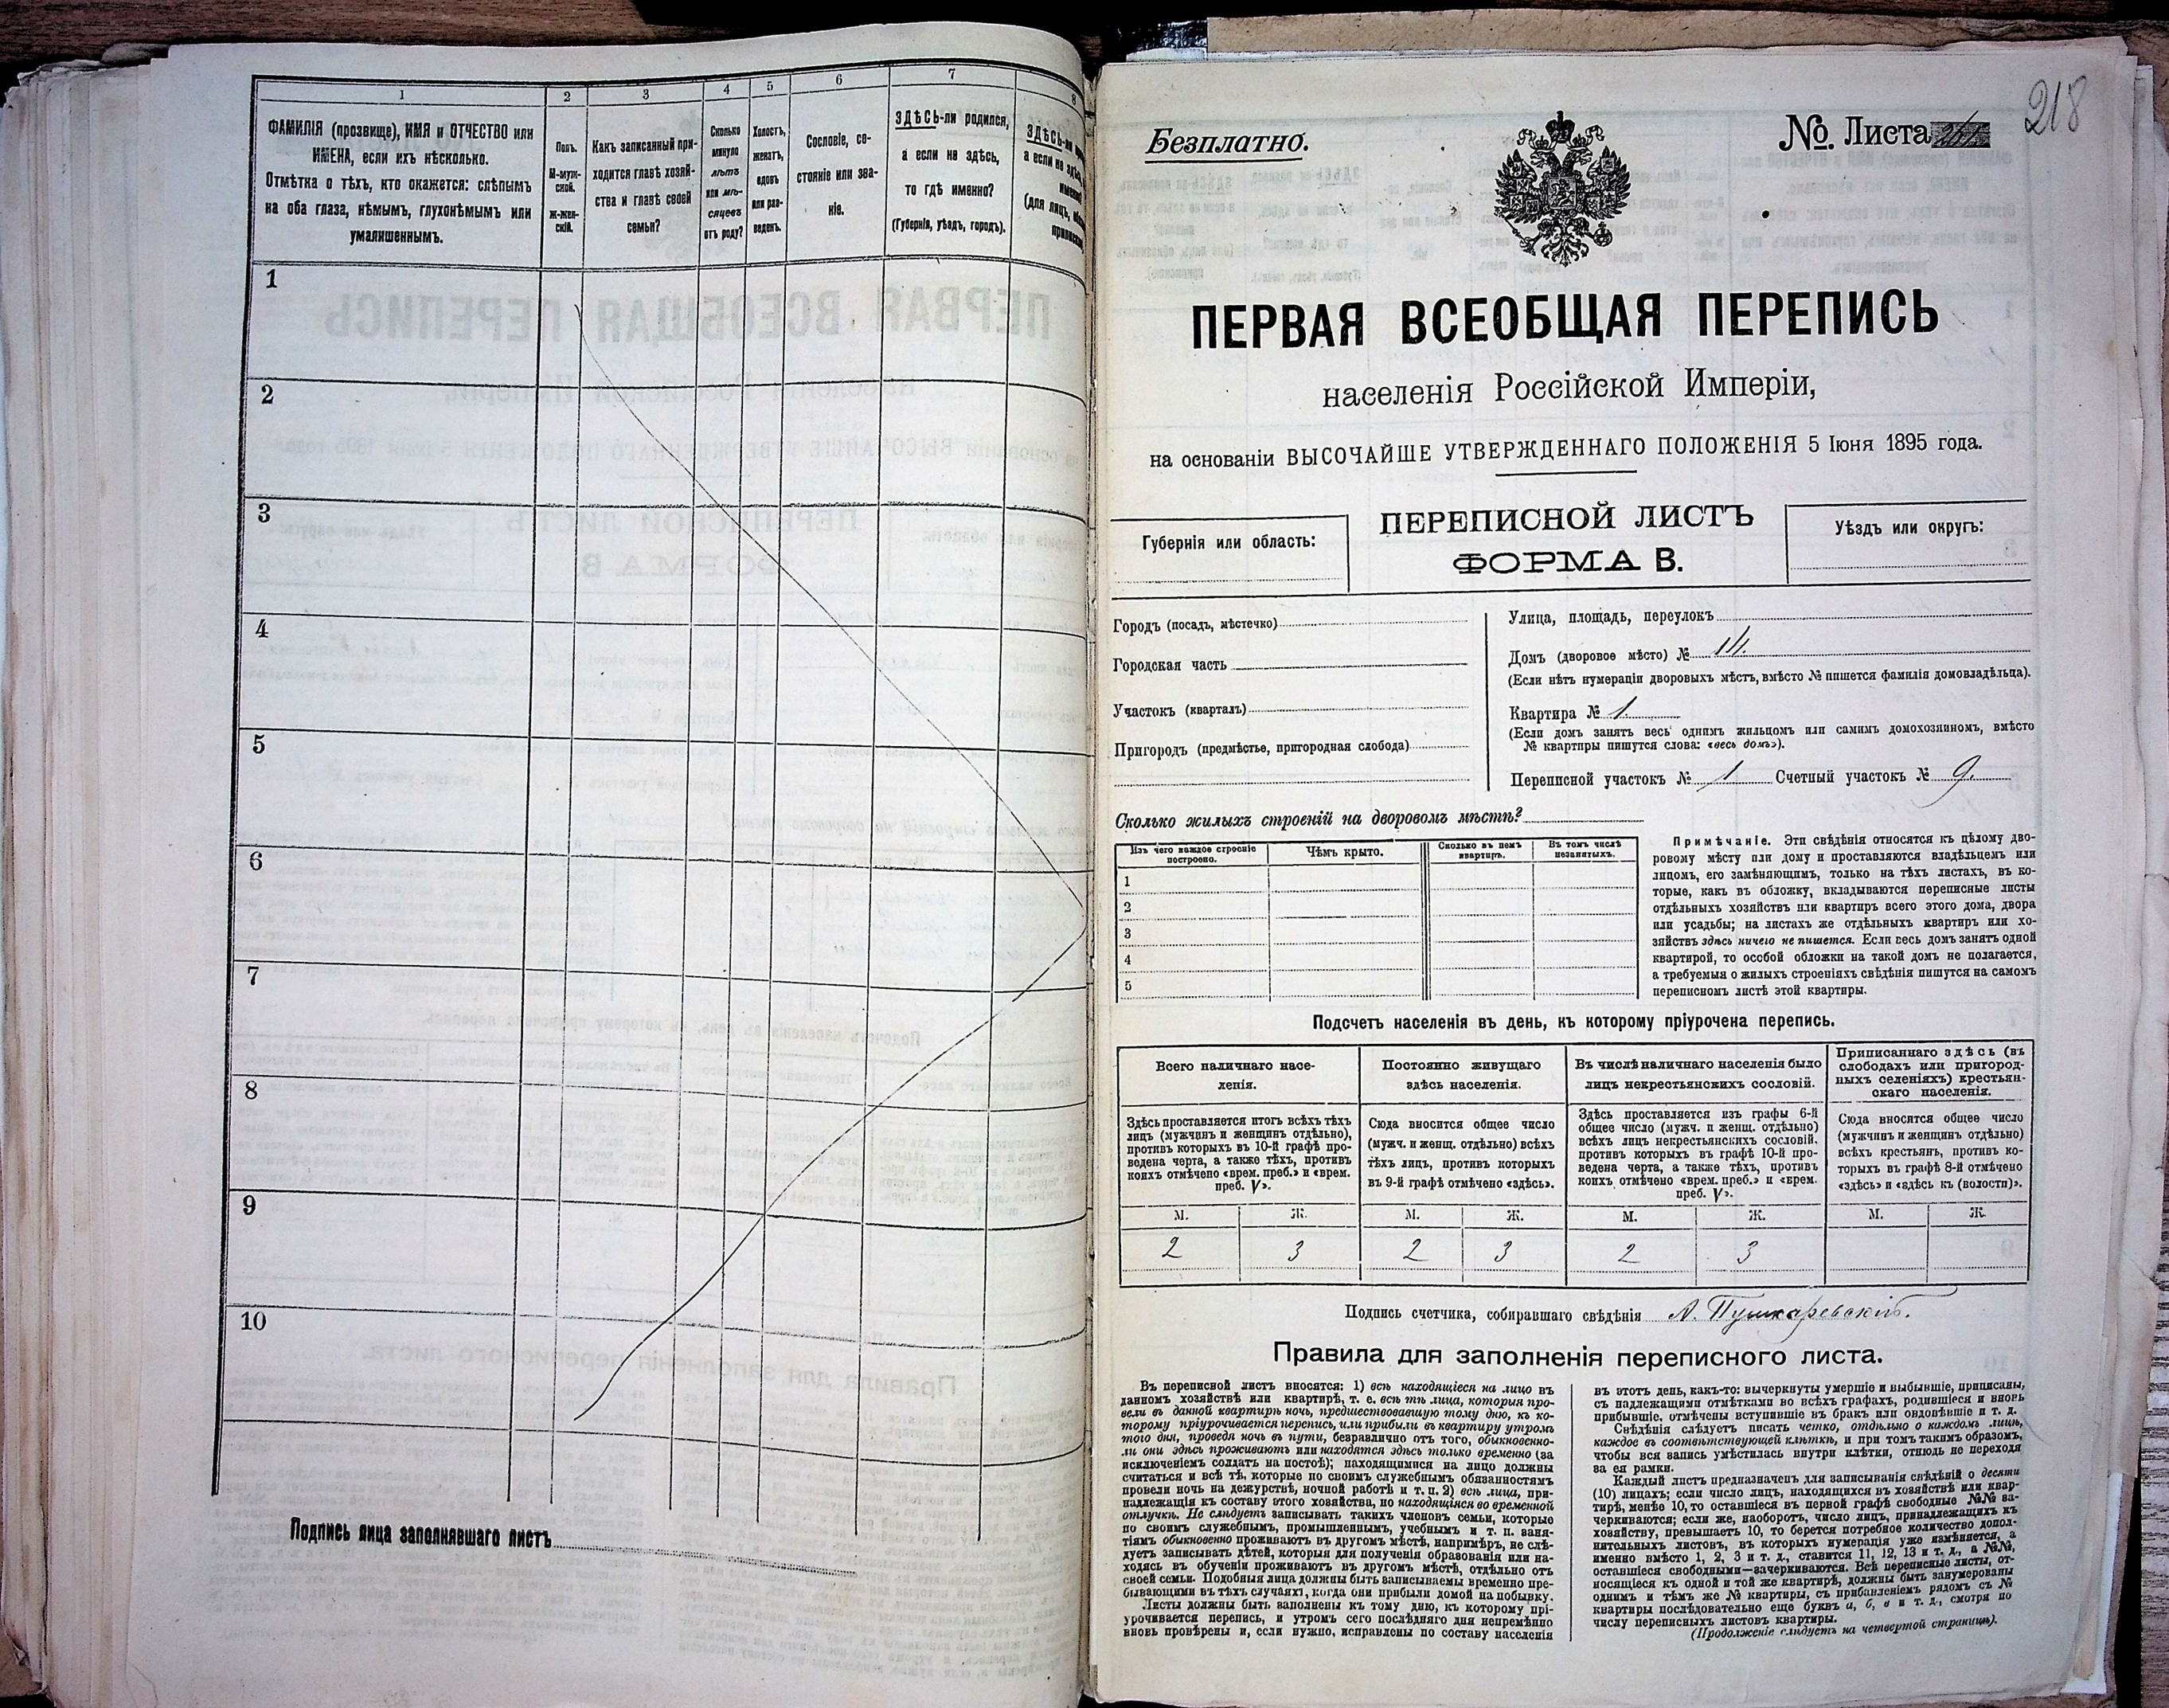 1
2
3
4
5
6
7
8
ФАМИЛІЯ (прозвище), ИМЯ и ОТЧЕСТВО или
ИМЕНА, если ихъ нѣсколько.
Отмѣтка о тѣхъ, кто окажется: слѣпымъ
на оба глаза, нѣмымъ, глухонѣмымъ или
умалишеннымъ.
Полъ.
М-муж-
ской.
Ж-жен-
скій.
Какъ записанный при-
ходится главѣ хозяй-
ства и главѣ своей
семьи?
Сколько
минуло
лѣтъ
или мѣ-
сяцевъ
отъ роду?
Холостъ,
женатъ,
вдовъ
или раз-
веденъ.
Сословіе, со-
стояніе или зва-
ніе.
ЗДѢСЬ-ли родился,
а если не здѣсь,
то гдѣ именно?
(Губернія, уѣздъ, городъ).
ЗДѢСЬ-ли
а если не здѣсь,
(для лицъ,
1
2
3
4
5
6
7
8
9
10
Подпись лица заполнявшаго листъ
218
Безплатно.
№ Листа
ПЕРВАЯ ВСЕОБЩАЯ ПЕРЕПИСЬ
населенія Россійской Имперіи,
на основаніи ВЫСОЧАЙШЕ УТВЕРЖДЕННАГО ПОЛОЖЕНІЯ 5 Іюня 1895 года.
Губернія или область:
ПЕРЕПИСНОЙ ЛИСТЪ
ФОРМА В.
Уѣздъ или округъ:
Городъ (посадъ, мѣстечко)
Городская часть
Участокъ (кварталъ)
Пригородъ (предмѣстье, пригородная слобода)
Улица, площадь, переулокъ
Домъ (дворовое мѣсто) №
(Если нѣтъ нумераціи дворовыхъ мѣстъ, вмѣсто № пишется фамилія домовладѣльца).
Квартира № 1.
(Если домъ занятъ весь одним жильцомъ или самимъ домохозяиномъ, вмѣсто
№ квартиры пишутся слова: «весь домъ»).
Переписной участокъ № 1 Счетный участокъ № 9.
Сколько жилыхъ строеній на дворовомъ мѣстѣ?
Изъ чего каждое строеніе
построено.
Чѣмъ крыто.
Сколько въ немъ
квартиръ.
Въ томъ числѣ
незанятыхъ.
1
2
3
4
5
Примѣчаніе. Эти свѣдѣнія относятся къ цѣлому дво-
ровому мѣсту или дому и проставляются владѣльцемъ или
лицомъ, его замѣняющимъ, только на тѣхъ листахъ, въ ко-
торые, какъ въ обложку, вкладываются переписные листы
отдѣльныхъ хозяйствъ или квартиръ всего этого дома, двора
или усадьбы; на листахъ же отдѣльныхъ квартиръ или хо-
зяйствъ здѣсь ничего не пишется. Если весь домъ занятъ одной
квартирой, то особой обложки на такой домъ не полагается,
а требуемыя о жилыхъ строеніяхъ свѣдѣнія пишутся на самомъ
переписномъ листѣ этой квартиры.
Подсчетъ населенія въ день, къ которому пріурочена перепись.
Всего наличнаго насе-
ленія.
Постоянно живущаго
здѣсь населенія.
Въ числѣ наличнаго населенія было
лицъ некрестьянскихъ сословій.
Приписаннаго здѣсь (въ
слободахъ или пригород-
ныхъ селеніяхъ) крестьян-
скаго населенія.
Здѣсь проставляется итогъ всѣхъ тѣхъ
лицъ (мужчинъ и женщинъ отдѣльно),
противъ которыхъ въ 10-й графѣ про-
ведена черта, а также тѣхъ, противъ
коихъ отмѣчено «врем. преб.» и «врем.
преб. V».
Сюда вносится общее число
(мужч. и женщ. отдѣльно) всѣхъ
тѣхъ лицъ, противъ которыхъ
въ 9-й графѣ отмѣчено «здѣсь».
Здѣсь проставляется изъ графы 6-й
общее число (мужч. и женщ. отдѣльно)
всѣхъ лицъ некрестьянскихъ сословій,
противъ которыхъ въ графѣ 10-й про-
ведена черта, а также тѣхъ, противъ
коихъ отмѣчено «врем. преб.» и «врем.
преб. V».
Сюда вносятся общее число
(мужчинъ и женщинъ отдѣльно)
всѣхъ крестьянъ, противъ ко-
торыхъ въ графѣ 8-й отмѣчено
«здѣсь» и «здѣсь къ (волости)».
М. Ж. М. Ж. М. Ж. М. Ж.
2 3 2 3 2 3
Подпись счетчика, собиравшаго свѣдѣнія А. Пушкаревскій.
Правила для заполненія переписного листа.
Въ переписной листъ вносятся: 1) всѣ находящіеся на лицо въ
данномъ хозяйствѣ или квартирѣ, т. е. всѣ тѣ лица, которыя про-
вели въ данной квартирѣ ночь, предшествовавшую тому дню, къ ко-
торому пріурочивается перепись, или прибыли въ квартиру утромъ
того дня, проведя ночь въ пути, безразлично отъ того, обыкновенно-
ли они здѣсь проживаютъ или находятся здѣсь только временно (за
исключеніемъ солдатъ на постоѣ); находящимися на лицо должны
считаться и всѣ тѣ, которые по своимъ служебнымъ обязанностямъ
провели ночь на дежурствѣ, ночной работѣ и т. п. 2) всѣ лица, при-
надлежащія къ составу этого хозяйства, но находящіяся во временной
отлучкѣ. Не слѣдуетъ записывать такихъ членовъ семьи, которые
по своимъ служебнымъ, промышленнымъ, учебнымъ и т. п. заня-
тіямъ обыкновенно проживаютъ въ другомъ мѣстѣ, напримѣръ, не слѣ-
дуетъ записывать дѣтей, которыя для полученія образованія или на-
ходясь въ обученіи проживаютъ въ другомъ мѣстѣ, отдѣльно отъ
своей семьи. Подобныя лица должны быть записываемы временно пре-
бывающими въ тѣхъ случаяхъ, когда они прибыли домой на побывку.
Листы должны быть заполнены къ тому дню, къ которому прі-
урочивается перепись, и утромъ сего послѣдняго дня непремѣнно
вновь провѣрены и, если нужно, исправлены по составу населенія
въ этотъ день, какъ-то: вычеркнуты умершіе и выбывшіе, приписаны,
съ надлежащими отмѣтками во всѣхъ графахъ, родившіеся и вновь
прибывшіе, отмѣчены вступившіе въ бракъ или овдовѣвшіе и т. д.
Свѣдѣнія слѣдуетъ писать четко, отдѣльно о каждомъ лицѣ,
каждое въ соотвѣтствующей клѣткѣ, и при томъ такимъ образомъ,
чтобы вся запись умѣстилась внутри клѣтки, отнюдь не переходя
за ея рамки.
Каждый листъ предназначенъ для записыванія свѣдѣній о десяти
(10) лицахъ; если число лицъ, находящихся въ хозяйствѣ или квар-
тирѣ, менѣе 10, то оставшіеся въ первой графѣ свободные №№ за-
черкиваются; если же, наоборотъ, число лицъ, принадлежащихъ къ
хозяйству, превышаетъ 10, то берется потребное количество допол-
нительныхъ листовъ, въ которыхъ нумерація уже измѣняется, а
именно вмѣсто 1, 2, 3 и т. д., ставится 11, 12, 13 и т. д., а №№,
оставшіеся свободными—зачеркиваются. Всѣ переписные листы, от-
носящіеся къ одной и той же квартирѣ, должны быть занумерованы
однимъ и тѣмъ же № квартиры, съ прибавленіемъ рядомъ съ №
квартиры послѣдовательно еще буквъ а, б, в и т. д., смотря по
числу переписныхъ листовъ квартиры.
(Продолженіе слѣдуетъ на четвертой страницѣ).